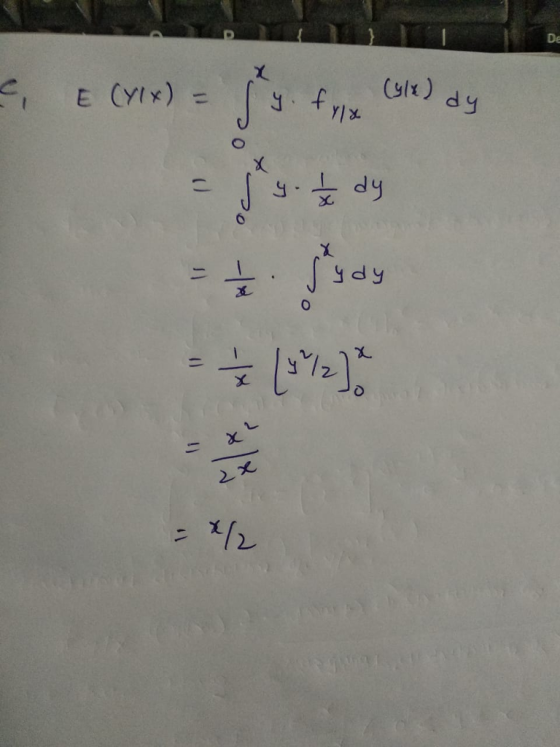 C, E (Y/x) = ∫₀ˣ y · f_{Y/x} (y/x) dy
= ∫₀ˣ y · 1/x dy
= 1/x · ∫₀ˣ y dy
= 1/x [y²/2]₀ˣ
= x²/2x
= x/2